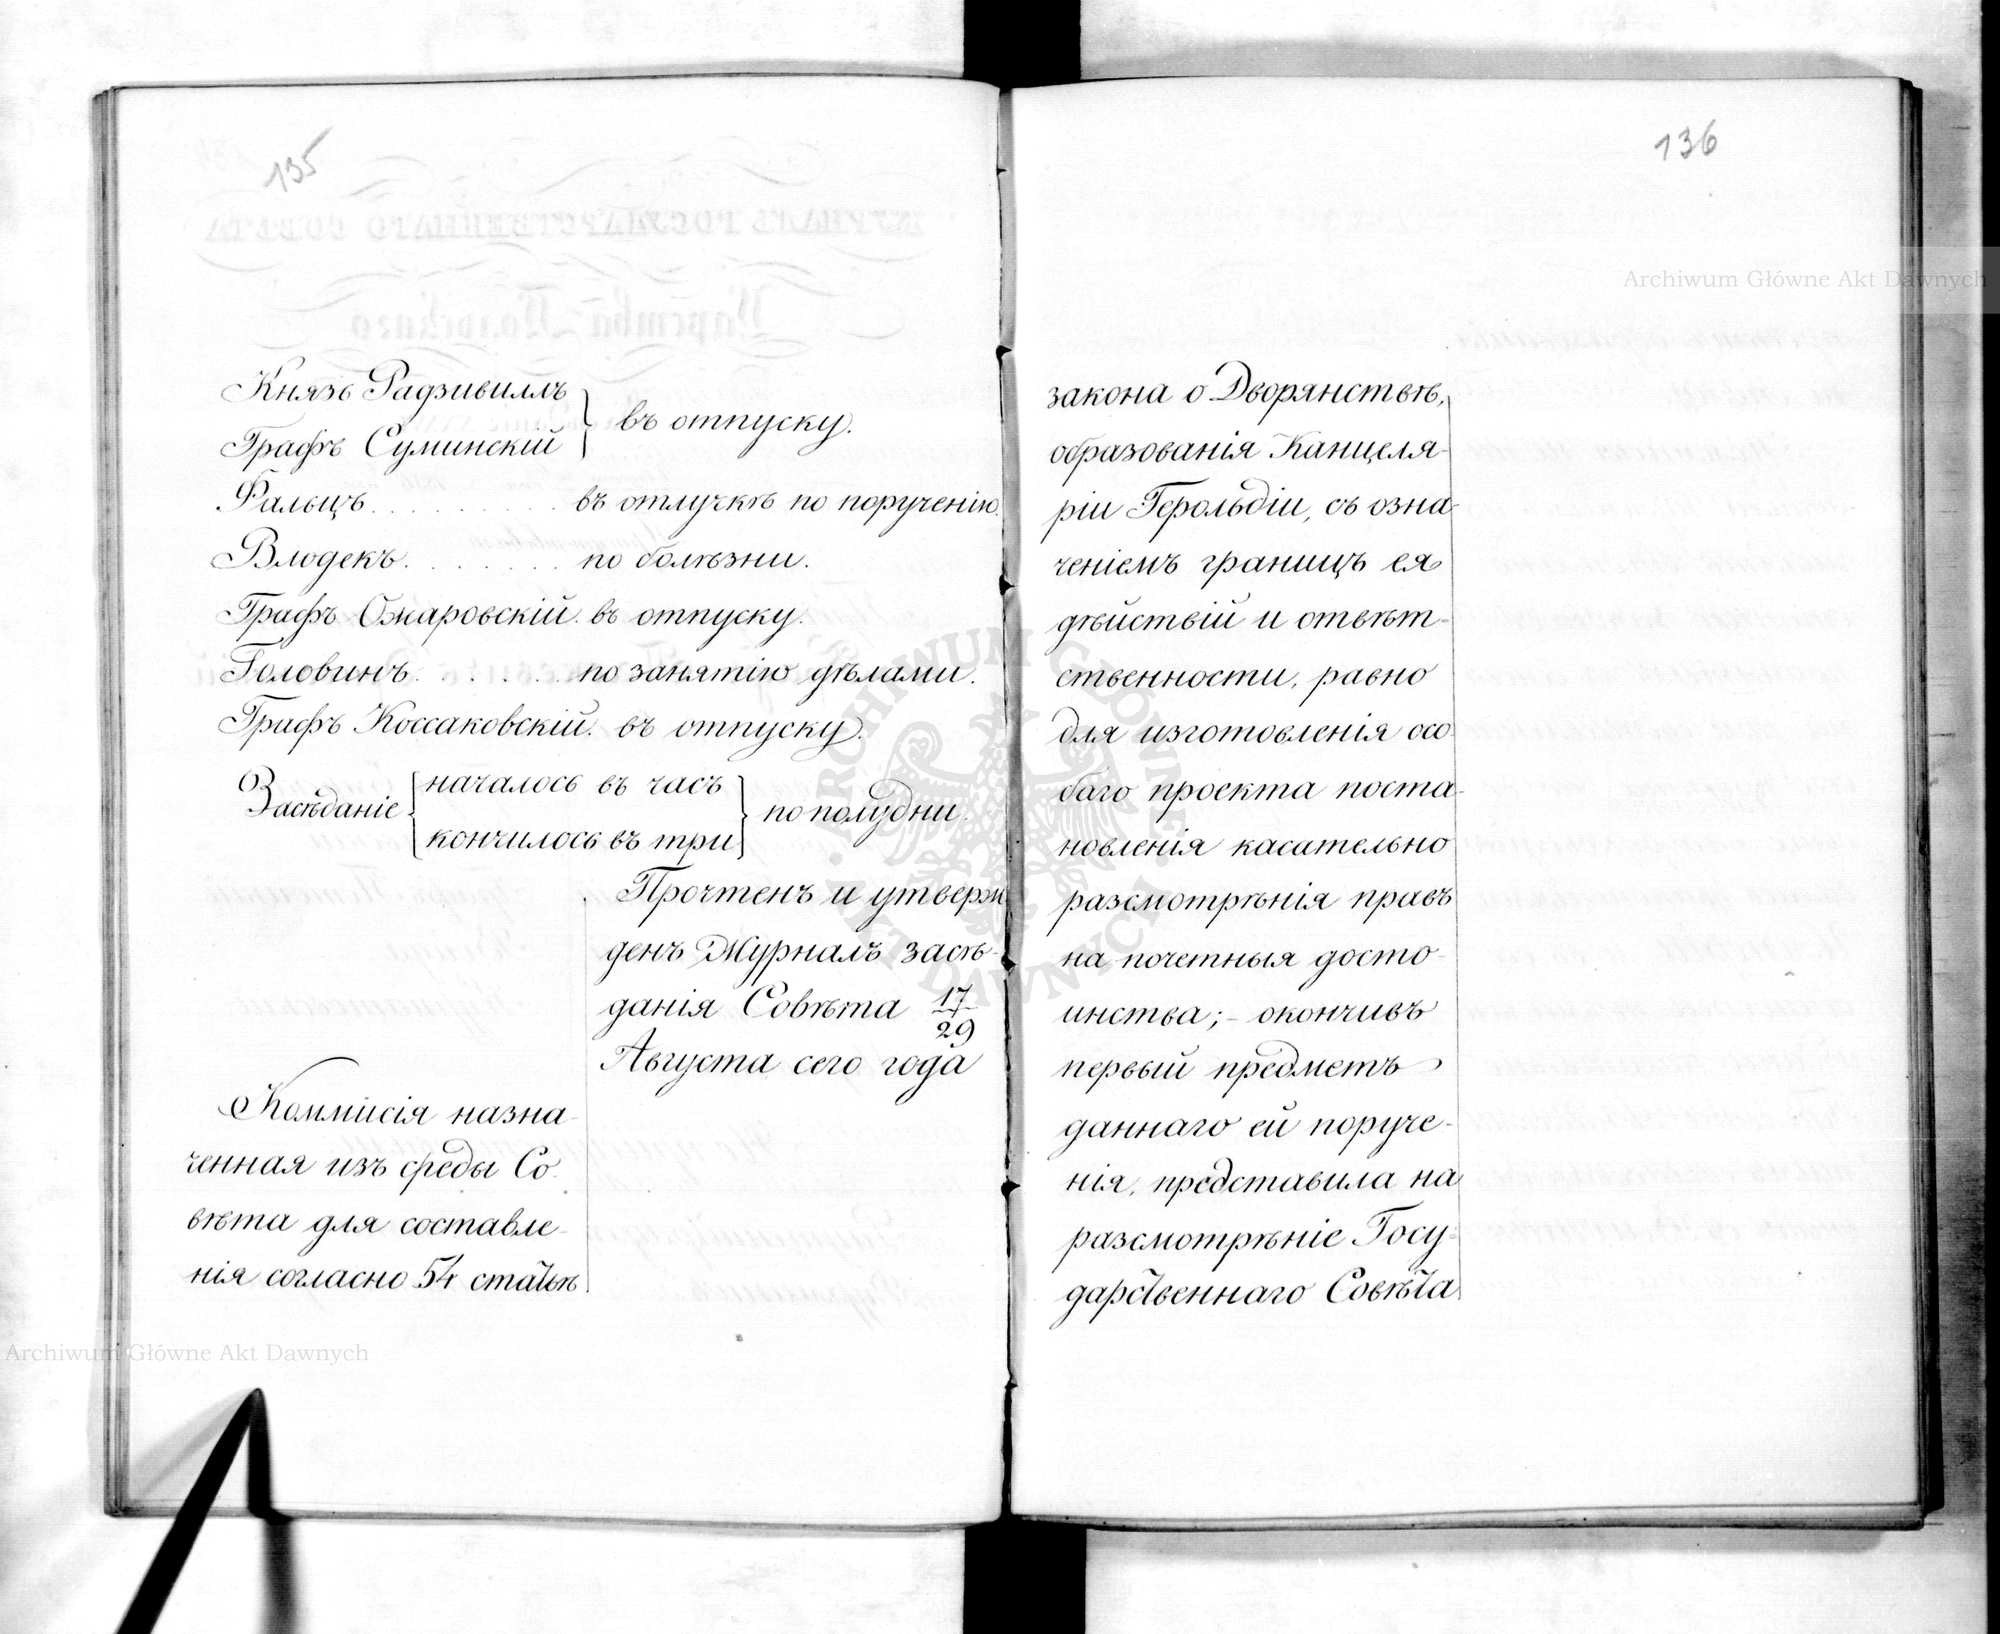 135
Князь Радзивиллъ
Графъ Суминскій } въ отпуску.
Фальцъ . . . . . . . . . въ отлучкѣ по порученію.
Влодекъ . . . . . . . по болѣзни.
Графъ Ожаровскій. въ отпуску.
Головинъ . . . . . . по занятію дѣлами.
Графъ Коссаковскій. въ отпуску.
началось въ часъ
Засѣданіе { } по полудни.
кончилось въ три
Прочтенъ и утверж
денъ Журналъ засѣ-
данія Совѣта 17/29
Августа сего года
Коммисія назна-
ченная изъ среды Со-
вѣта для составле-
нія согласно 54 статьѣ
136
закона о Дворянствѣ,
образованія Канцеля-
ріи Герольдіи, съ озна-
ченіемъ границъ ея
дѣйствій и отвѣт-
ственности, равно
для изготовленія осо
баго проекта поста-
новленія касательно
разсмотрѣнія правъ
на почетныя досто-
инства; - окончивъ
первый предметъ
даннаго ей поруче-
нія, представила на
разсмотрѣніе Госу-
дарственнаго Совѣта
Archiwum Główne Akt Dawnych
Archiwum Główne Akt Dawnych
ARCHIWUM GŁÓWNE AKT DAWNYCH